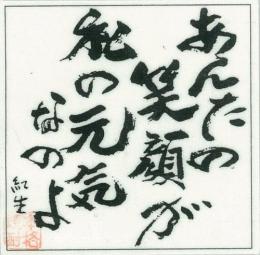 あんたの
笑顔が
私の元気
なのよ
紅生